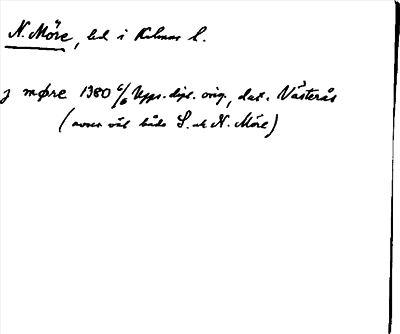 N. Möre, hd i Kalmar l.
j møre 1380 6/6 Upps. dipl. orig., dat. Västerås
(avser väl både S. och N. Möre)